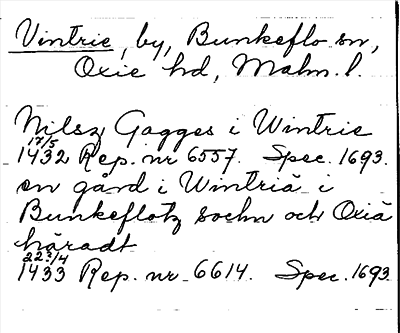 Vintrie, by, Bunkeflo sn,
Oxie hd, Malm. l.
Nilsz Gagges i Wintrie
17/5
1432 Rep. nr 6557. Spec. 1693.
en gård i Wintriä i
Bunkeflotz sochn och Oxiä
häradt
22?/4
1433 Rep. nr 6614. Spec. 1693